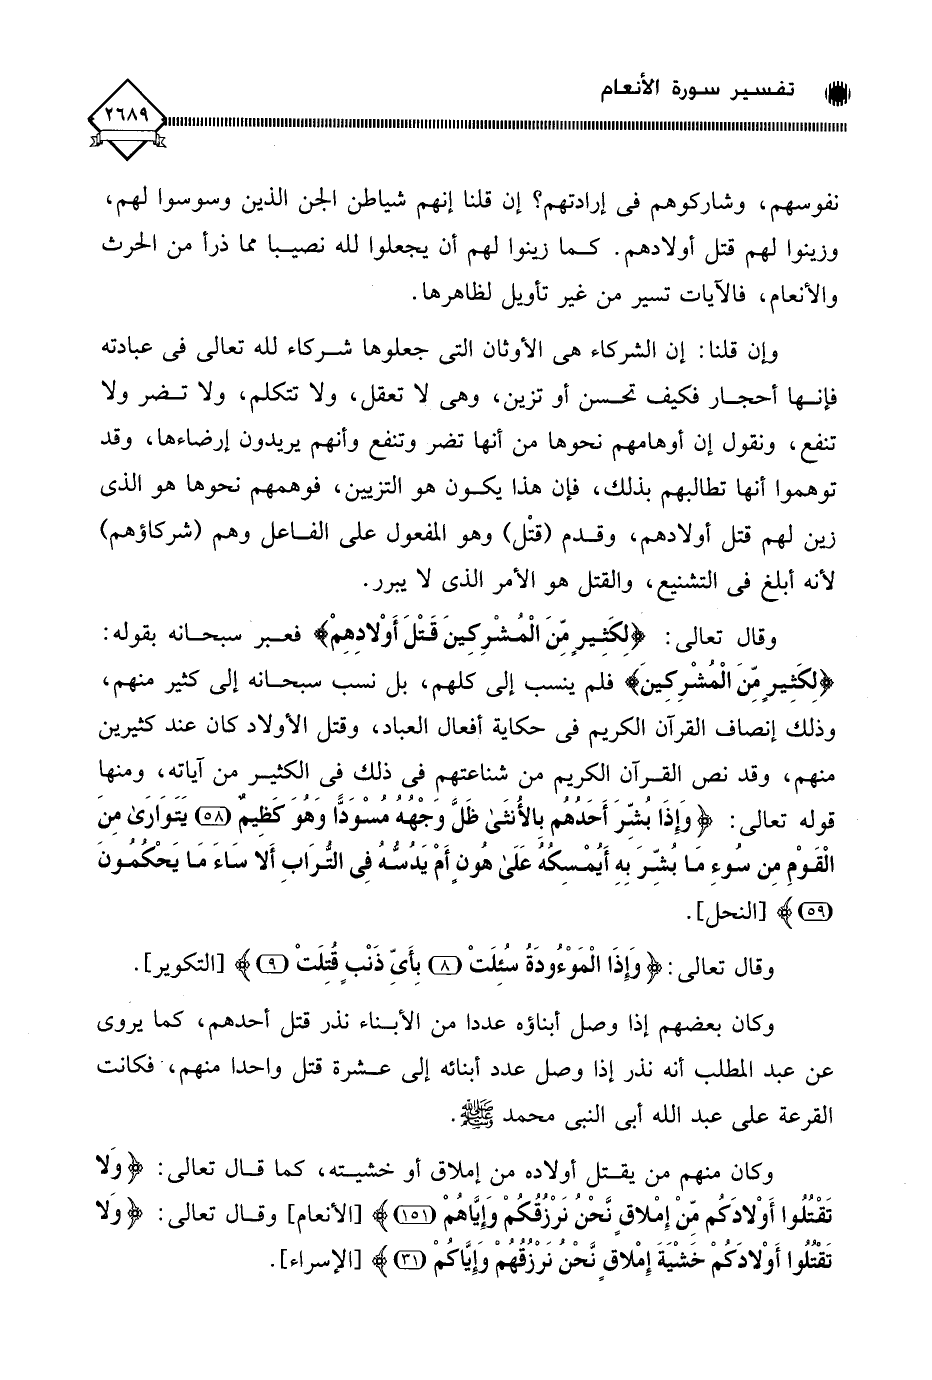 تفسير سورة الأنعام
٢٦٨٩
نفوسهم، وشاركوهم فى إرادتهم؟ إن قلنا إنهم شياطن الجن الذين وسوسوا لهم،
وزينوا لهم قتل أولادهم. كما زينوا لهم أن يجعلوا لله نصيبا مما ذرأ من الحرث
والأنعام، فالآيات تسير من غير تأويل لظاهرها.
وإن قلنا: إن الشركاء هى الأوثان التى جعلوها شركاء لله تعالى فى عبادته
فإنها أحجار فكيف تحسن أو تزين، وهى لا تعقل، ولا تتكلم، ولا تضر ولا
تنفع، ونقول إن أوهامهم نحوها من أنها تضر وتنفع وأنهم يريدون إرضاءها، وقد
توهموا أنها تطالبهم بذلك، فإن هذا يكون هو التزيين، فوهمهم نحوها هو الذى
زين لهم قتل أولادهم، وقدم (قتْل) وهو المفعول على الفاعل وهم (شركاؤهم)
لأنه أبلغ فى التشنيع، والقتل هو الأمر الذى لا يبرر.
وقال تعالى: ﴿لِكَثِيرٍ مِّنَ الْمُشْرِكِينَ قَتْلَ أَوْلادِهِمْ﴾ فعبر سبحانه بقوله:
﴿لِكَثِيرٍ مِّنَ الْمُشْرِكِينَ﴾ فلم ينسب إلى كلهم، بل نسب سبحانه إلى كثير منهم،
وذلك إنصاف القرآن الكريم فى حكاية أفعال العباد، وقتل الأولاد كان عند كثيرين
منهم، وقد نص القرآن الكريم من شناعتهم فى ذلك فى الكثير من آياته، ومنها
قوله تعالى: ﴿وَإِذَا بُشِّرَ أَحَدُهُم بِالأُنثَىٰ ظَلَّ وَجْهُهُ مُسْوَدًّا وَهُوَ كَظِيمٌ (٥٨) يَتَوَارَىٰ مِنَ
الْقَوْمِ مِن سُوءِ مَا بُشِّرَ بِهِ أَيُمْسِكُهُ عَلَىٰ هُونٍ أَمْ يَدُسُّهُ فِى التُّرَابِ أَلا سَاءَ مَا يَحْكُمُونَ
(٥٩)﴾ [النحل].
وقال تعالى: ﴿وَإِذَا الْمَوْءُودَةُ سُئِلَتْ (٨) بِأَىِّ ذَنْبٍ قُتِلَتْ (٩)﴾ [التكوير].
وكان بعضهم إذا وصل أبناؤه عددا من الأبناء نذر قتل أحدهم، كما يروى
عن عبد المطلب أنه نذر إذا وصل عدد أبنائه إلى عشرة قتل واحدا منهم، فكانت
القرعة على عبد الله أبى النبى محمد ﷺ.
وكان منهم من يقتل أولاده من إملاق أو خشيته، كما قال تعالى: ﴿وَلا
تَقْتُلُوا أَوْلادَكُم مِّنْ إِمْلاقٍ نَّحْنُ نَرْزُقُكُمْ وَإِيَّاهُمْ (١٥١)﴾ [الأنعام] وقال تعالى: ﴿وَلا
تَقْتُلُوا أَوْلادَكُمْ خَشْيَةَ إِمْلاقٍ نَّحْنُ نَرْزُقُهُمْ وَإِيَّاكُمْ (٣١)﴾ [الإسراء].